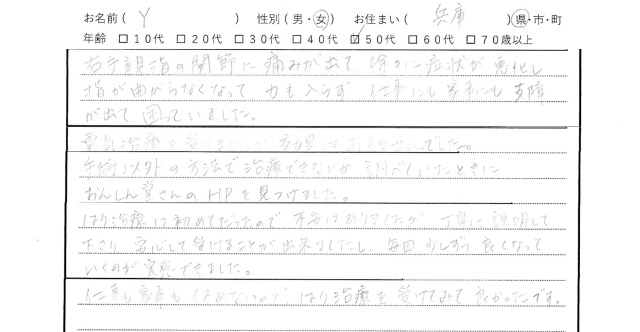 お名前( Y ) 性別(男・女) お住まい( 兵庫 ) 県・市・町
年齢 □10代 □20代 □30代 □40代 ☑50代 □60代 □70歳以上
右手親指の関節に痛みが出て、徐々に症状が悪化し
指が曲がらなくなって、力も入らず 仕事にも家事にも支障
が出て困っていました。
電気治療を受けましたが効果はありませんでした。
手術以外の方法で治療できないか調べていたときに
おんしん堂さんのHPを見つけました。
はり治療は初めてだったので不安はありましたが 丁寧に説明して
下さり、安心して受けることが出来ましたし、毎回少しずつ良くなって
いくのが実感できました。
仕事も家事も休めないので、はり治療を受けてみて良かったです。